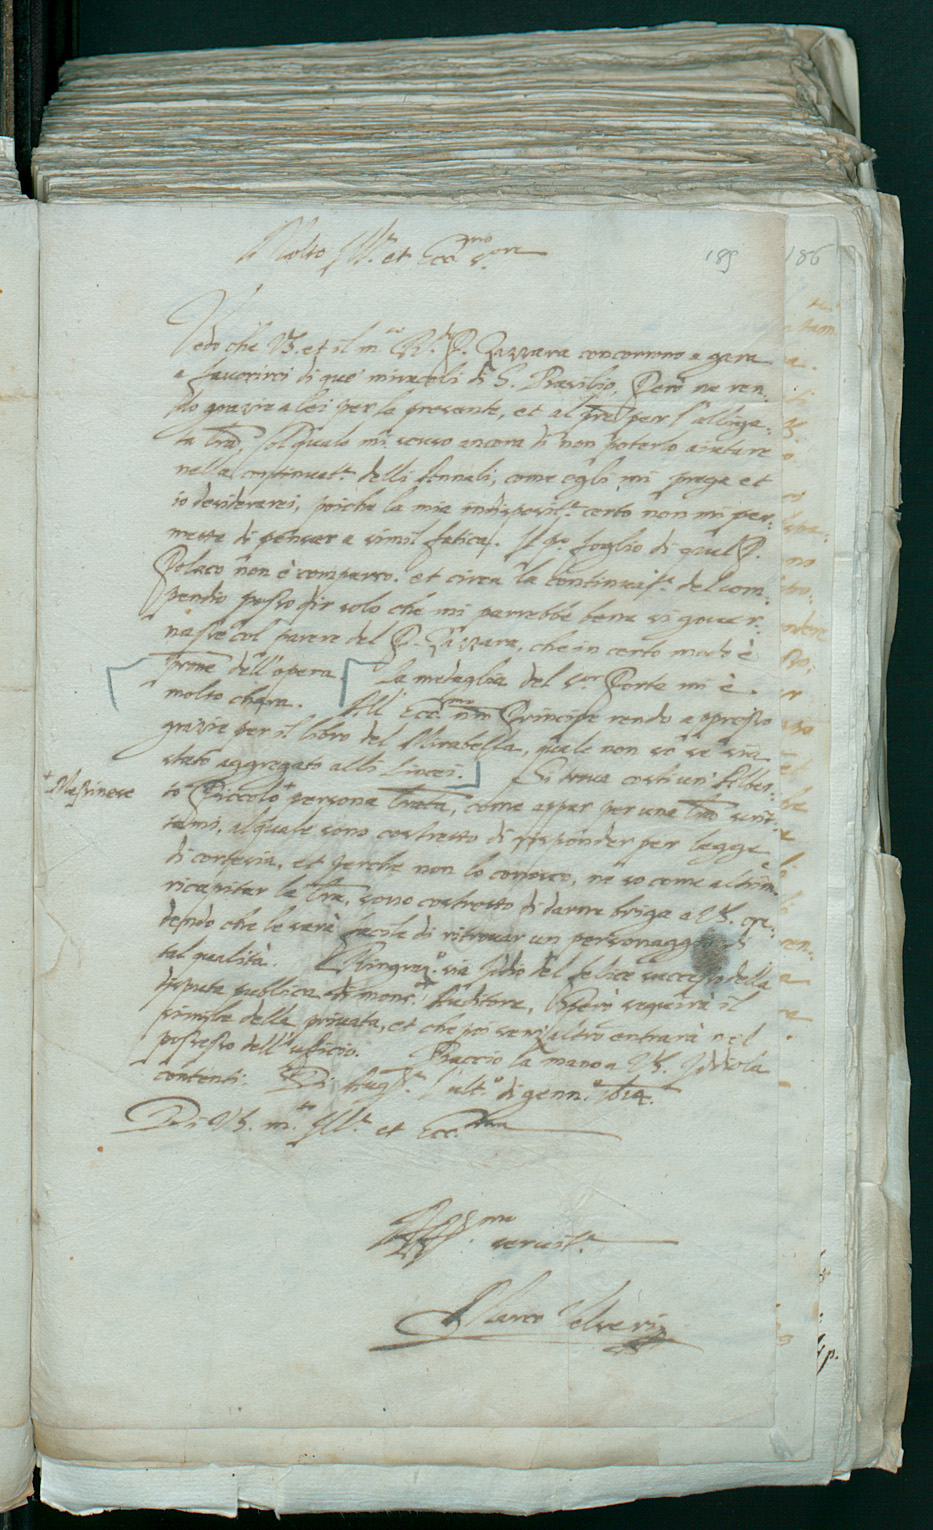 Molto Ill.re et Ecc.mo s.ore
185
186
Vedo che VS. et il m.to R.do P. Gazzara concorrono a gara
a favorirci di que' miracoli di S. Basilio. Però ne ren-
do grazie a lei per la presente, et al pre per l'alliga-
ta lra, sol quale mi scuso ancora di non poterlo aiutare
nella continuat.e delli Annali, come egli mi prega et
io desiderarei, poiche la mia indisposit.e certo non mi per-
mette di pensar a simil fatica. Il p.o foglio di quel P.
Polaco non è comparso. et circa la continuat.e del com-
pendio posso dir solo che mi parrebbe bene si gover-
nasse col parere del P. Gazzara, che in certo modo è
dell'opera La medaglia del s.or Porta mi è
molto chara. All'Ecc.mo nro Principe rendo appresso
grazie per il libro del Mirabella, quale non sò se sia
stato aggregato alli Lincei. Si trova costì un' Alber-
+ Messinese
to Piccolo + persona lrata, come appar per una lra scrit-
tami, al quale sono costretto di risponder per legge
di cortesia, et perche non lo conosco, ne so come altrim.
ricapitar la lra, sono costretto di darne briga a VS. cre-
dendo che le sarà facile di ritrovar un personaggio di
tal qualità. Ringraz.o sia Iddio del felice successo della
disputa publica di mons.r Auditore, spero seguirà il
simile della privata, et che poi senz'altro entrarà nel
possesso dell'ufficio. Baccio la mano a VS. Iddio la
contenti. Di Aug.ta l'ult.o di genn.o 1614.
Di VS. m.to Ill.re et Ecc.ma
Aff.mo servit.e
Marco Velseri